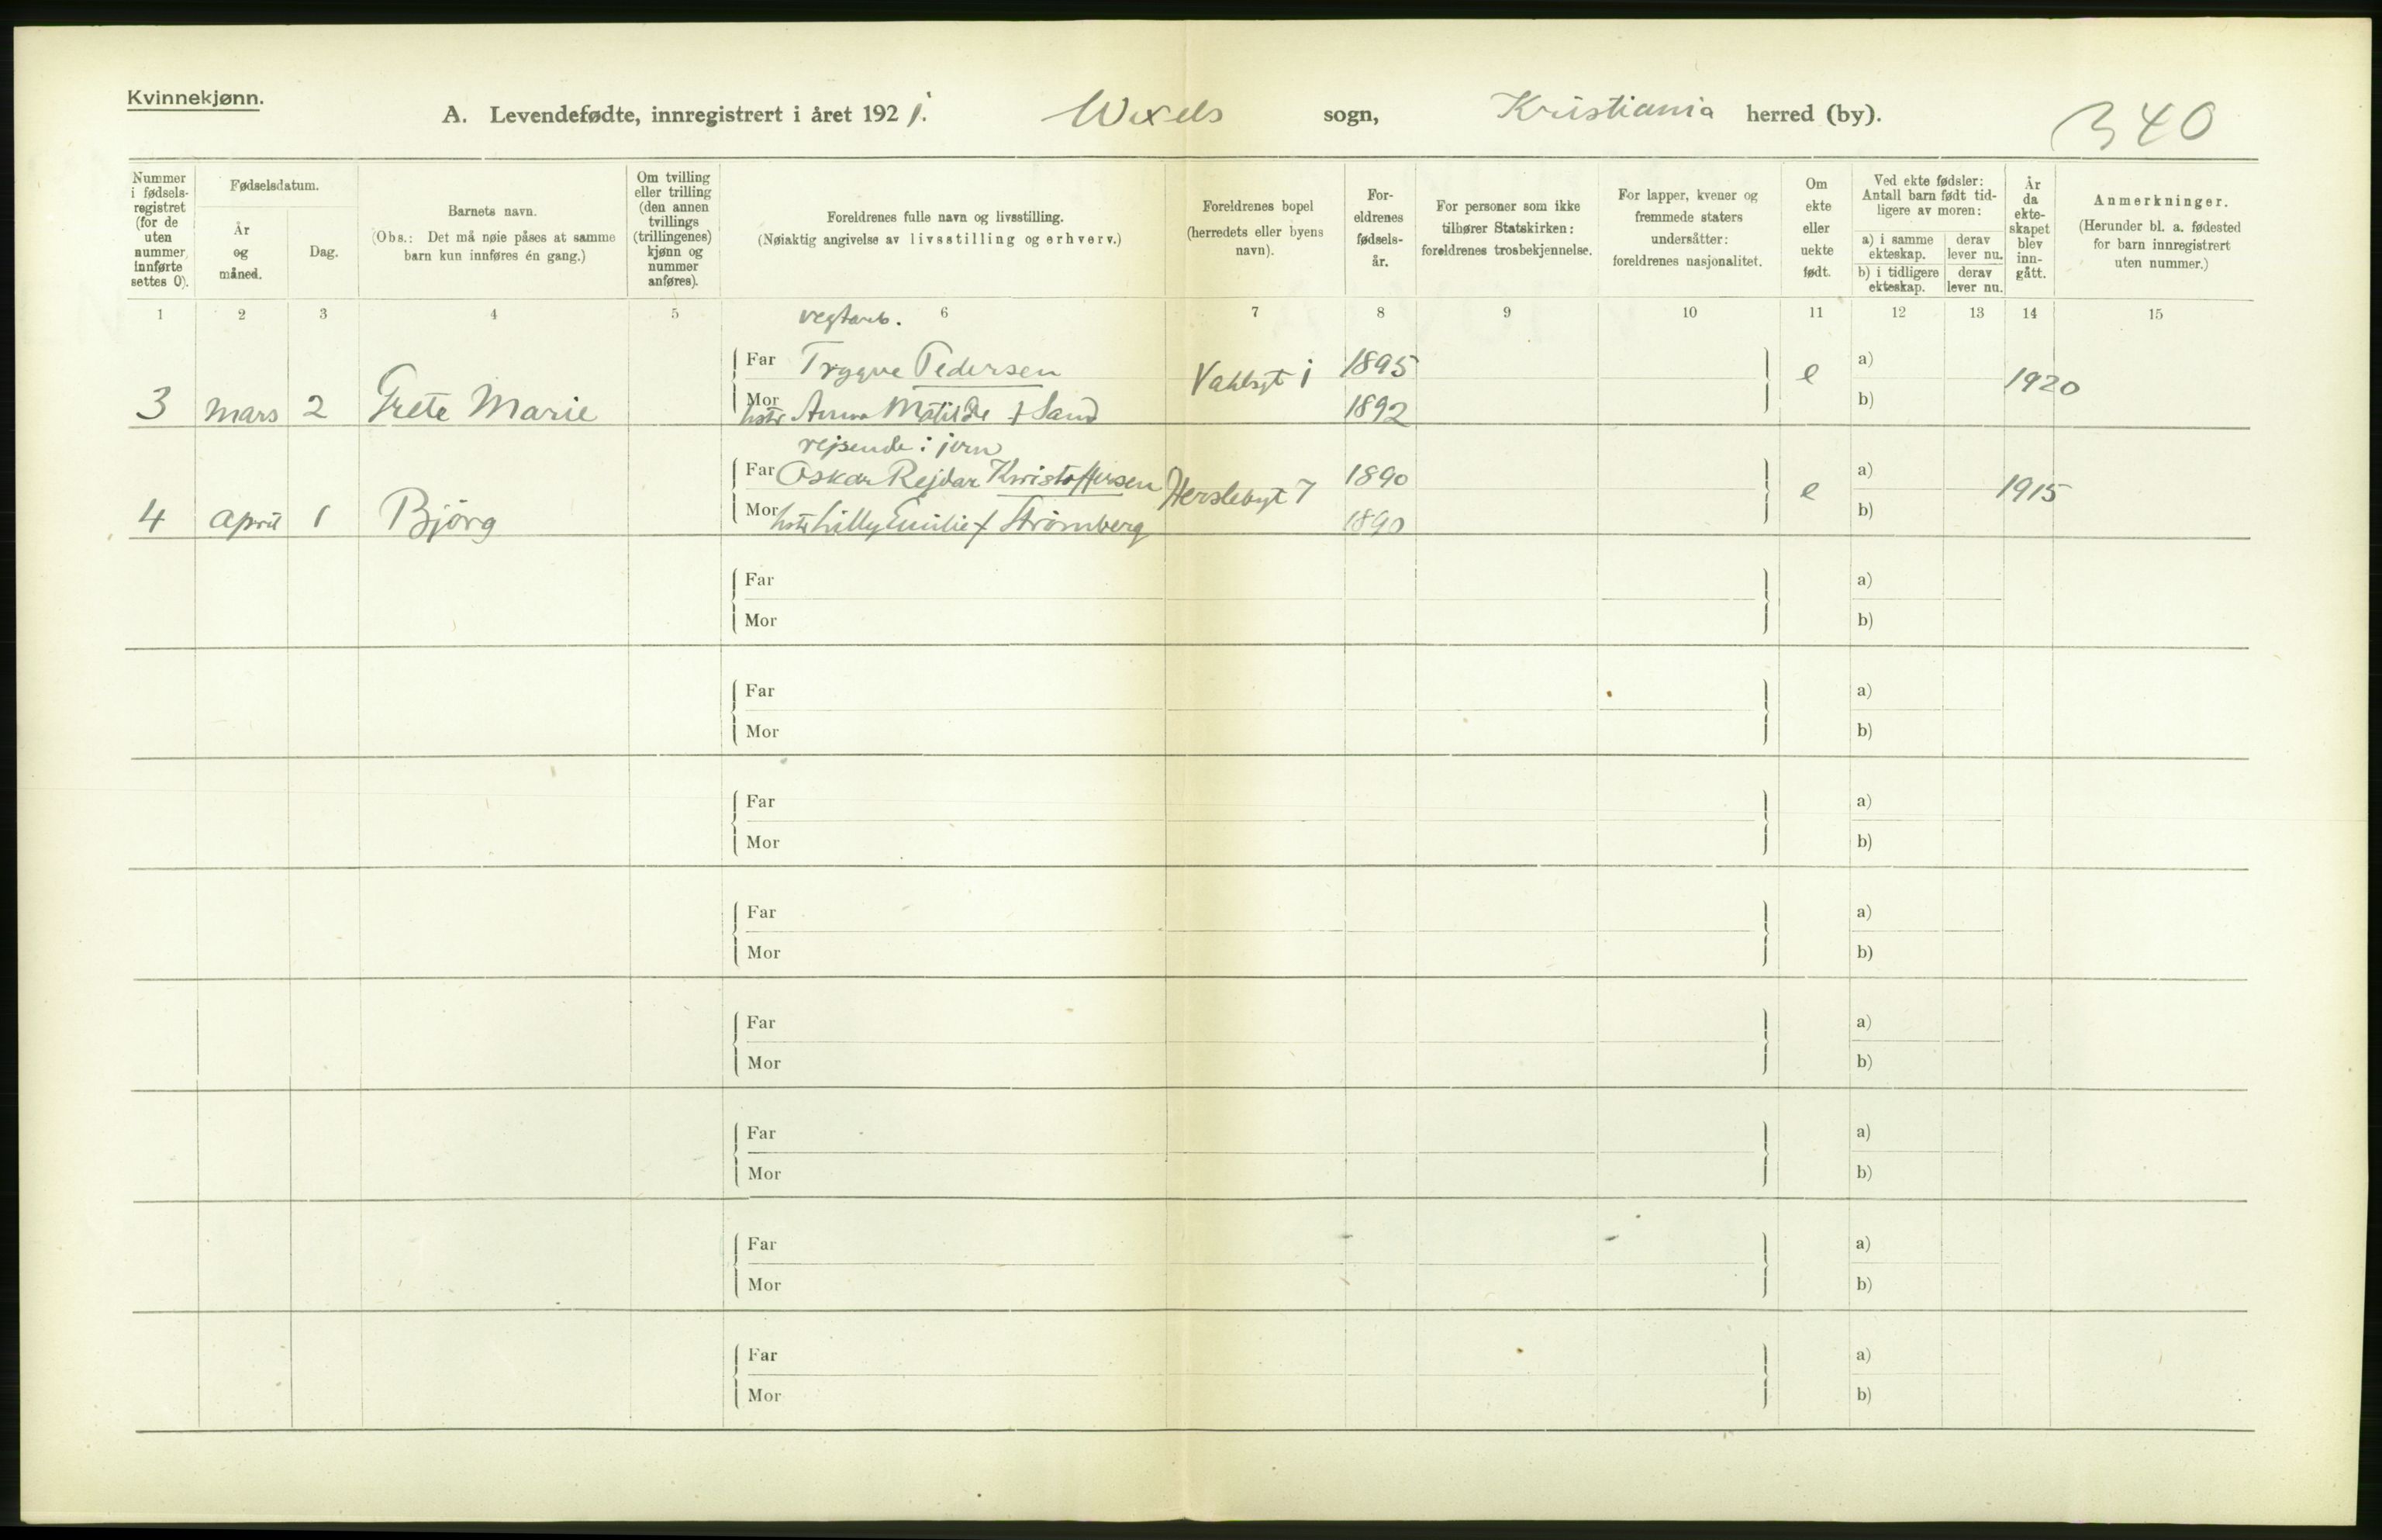 Kvinnekjønn.
A. Levendefødte, innregistrert i året 1921. Wexels sogn, Kristiania herred (by). 340
Nummer i fødsels-registret (for de uten nummer innførte settes 0).
Fødselsdatum.
År og måned.
Dag.
Barnets navn.
(Obs.: Det må nøie påses at samme barn kun innføres én gang.)
Om tvilling eller trilling (den annen tvillings (trillingenes) kjønn og nummer anføres).
Foreldrenes fulle navn og livsstilling.
(Nøiaktig angivelse av livsstilling og erhverv.)
Foreldrenes bopel (herredets eller byens navn).
For-eldrenes fødsels-år.
For personer som ikke tilhører Statskirken: foreldrenes trosbekjennelse.
For lapper, kvener og fremmede staters undersåtter: foreldrenes nasjonalitet.
Om ekte eller uekte født.
Ved ekte fødsler: Antall barn født tid-ligere av moren:
a) i samme ekteskap. derav lever nu.
b) i tidligere ekteskap. derav lever nu.
År da ekte-skapet blev inn-gått.
Anmerkninger.
(Herunder bl. a. fødested for barn innregistrert uten nummer.)
1 2 3 4 5 6 7 8 9 10 11 12 13 14 15
vegtarb.
Far Trygve Pedersen Vahlsgt 1 1895 e a) 1920
3 Mars 2 Grete Marie Mor hstr Anna Matilde f Sand 1892 b)
rejsende i jern
Far Oskar Rejdar Kristoffersen Herslebsgt 7 1890 e a) 1915
4 April 1 Bjørg Mor hstr Lilly Emilie f Strømberg 1890 b)
Far a)
Mor b)
Far a)
Mor b)
Far a)
Mor b)
Far a)
Mor b)
Far a)
Mor b)
Far a)
Mor b)
Far a)
Mor b)
Far a)
Mor b)